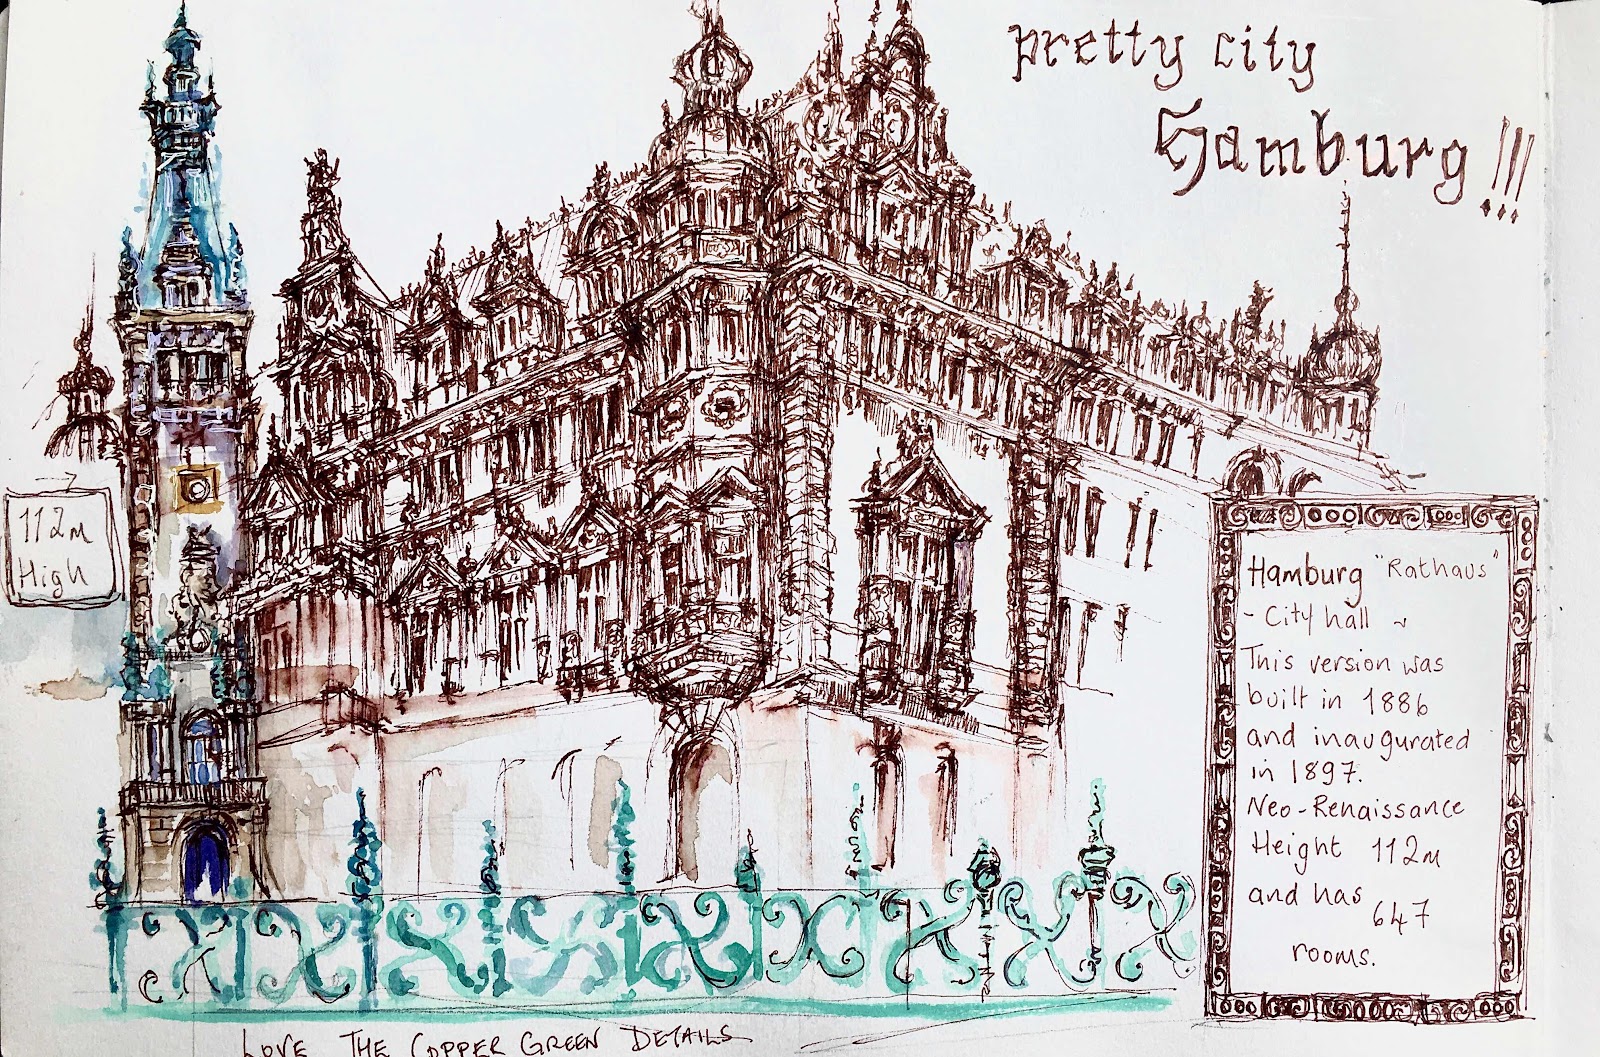 pretty city
Hamburg!!!
112m
High
Hamburg "Rathaus"
- City hall ~
This version was
built in 1886
and inaugurated
in 1897.
Neo-Renaissance
Height 112m
and has
647
rooms.
LOVE THE COPPER GREEN DETAILS